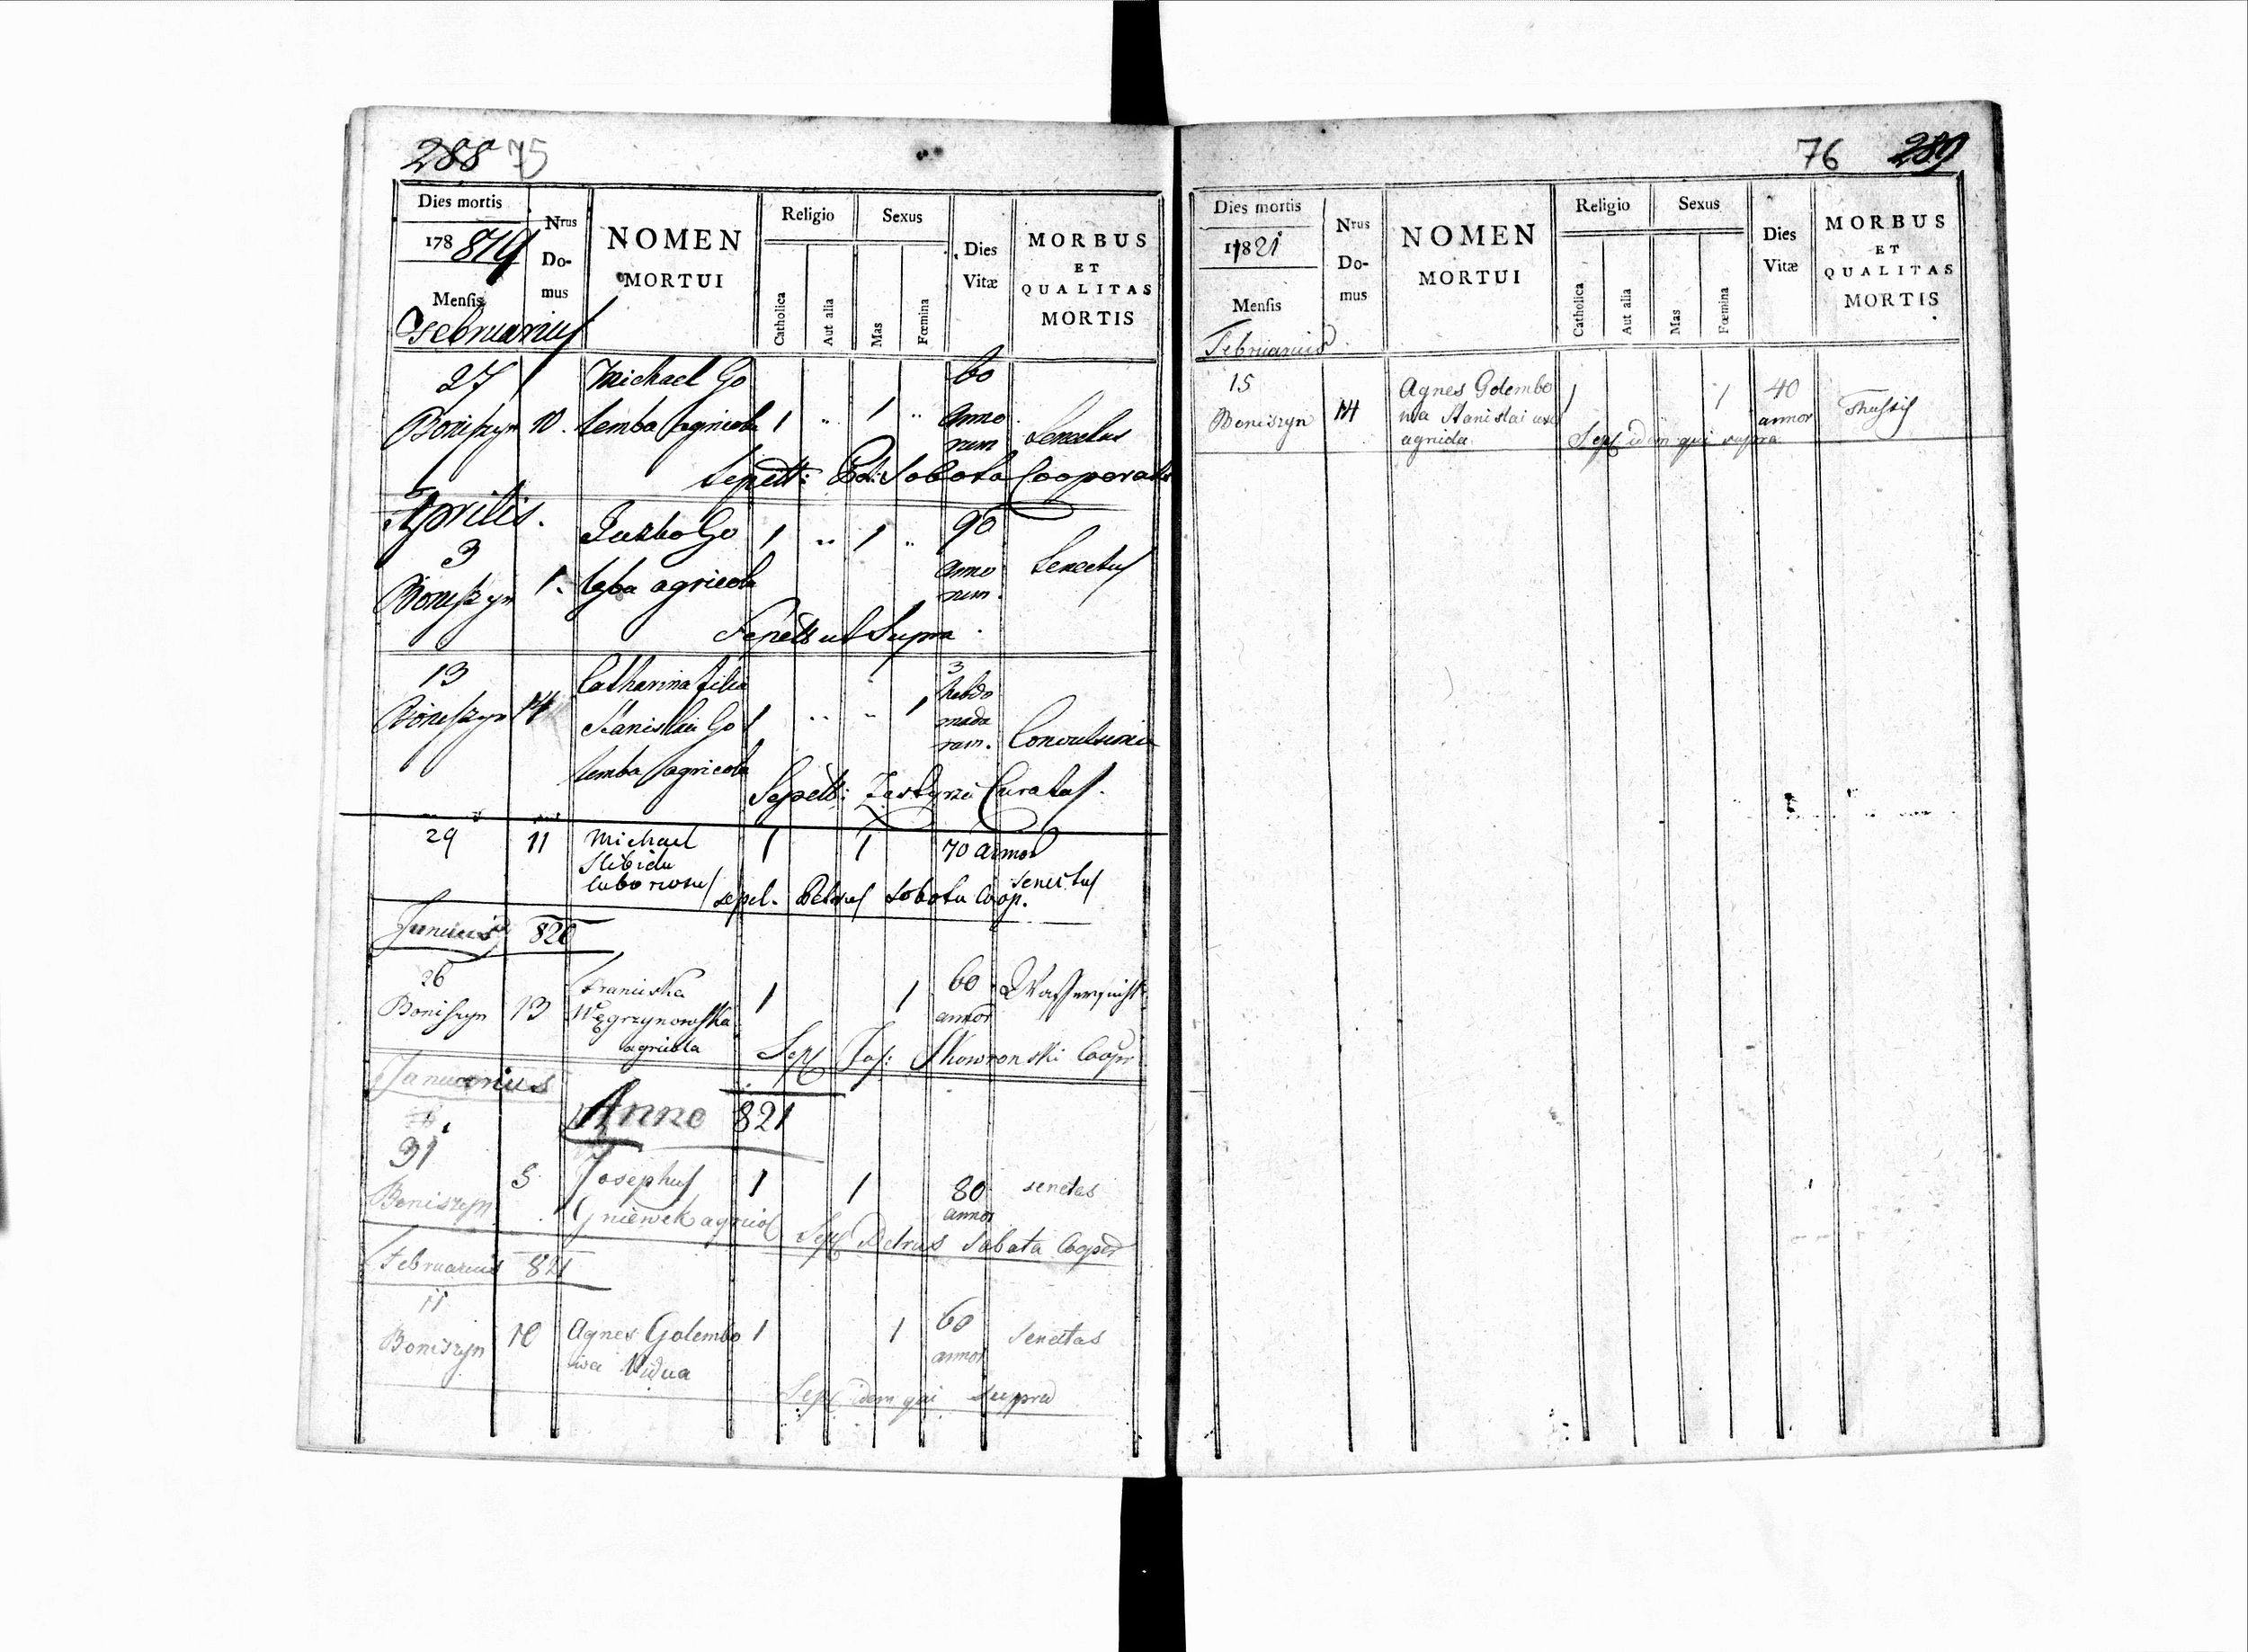 288 75
Dies mortis
178 819
Mensis
Februarius
Nrus
Do-
mus
NOMEN
MORTUI
Religio
Catholica
Aut alia
Sexus
Mas
Fœmina
Dies
Vitæ
MORBUS
ET
QUALITAS
MORTIS
27 Michael Go 60
Boniszyn 10. lemba agricola 1 " 1 " anno
rum Senectus
Sepelt: Pet: Sobota Cooperator
Aprilis.
3 Go 1 " 1 " 90
Boniszyn 1. łęba agricola anno
rum. Senectus
Sepelt ut Supra
13 Catharina filia 3
Boniszyn 14 Stanislai Go 1 " " 1 hebdo
mada
rum. Convulsionis
lemba agricola
Sepelt: Curatus.
29 11 Michael 1 1 70 annor
laboriosus senectus
sepel. Petrus Sobota Coop.
Junius 820
26 Franciska 1 1 60 Wassersucht
Boniszyn 13 Węgrzynowska annor
agricola
Sepel Jos: Skowronski Coopr
Januarius
Anno 821
31
Boniszyn 5 Josephus 1 1 80 senectas
Gniewek agricol annor
Sepel Petrus Sobota Cooper
Februarius 821
11
Boniszyn 10 Agnes Golembo 1 1 60 Senectas
wa Vidua annor
Sepel idem qui supra
76 289
Dies mortis
1821
Mensis
Februarius
Nrus
Do-
mus
NOMEN
MORTUI
Religio
Catholica
Aut alia
Sexus
Mas
Fœmina
Dies
Vitæ
MORBUS
ET
QUALITAS
MORTIS
15 Agnes Golembo 1 1 40
Boniszyn 14 wa Stanislai uxo annor
agricola Sepel idem qui supra